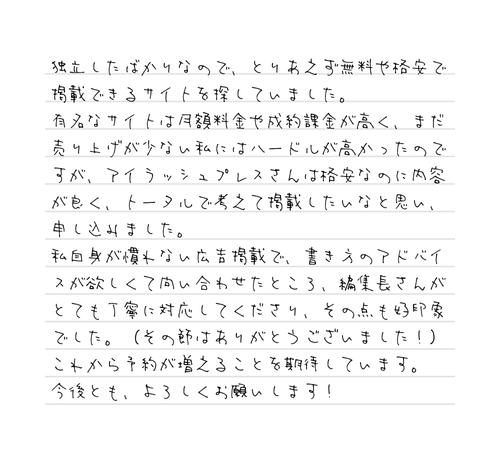 独立したばかりなので、とりあえず無料や格安で
掲載できるサイトを探していました。
有名なサイトは月額料金や成約課金が高く、まだ
売り上げが少ない私にはハードルが高かったので
すが、アイラッシュプレスさんは格安なのに内容
が良く、トータルで考えて掲載したいなと思い、
申し込みました。
私自身が慣れない広告掲載で、書き方のアドバイ
スが欲しくて問い合わせたところ、編集長さんが
とても丁寧に対応してくださり、その点も好印象
でした。（その節はありがとうございました！）
これから予約が増えることを期待しています。
今後とも、よろしくお願いします！